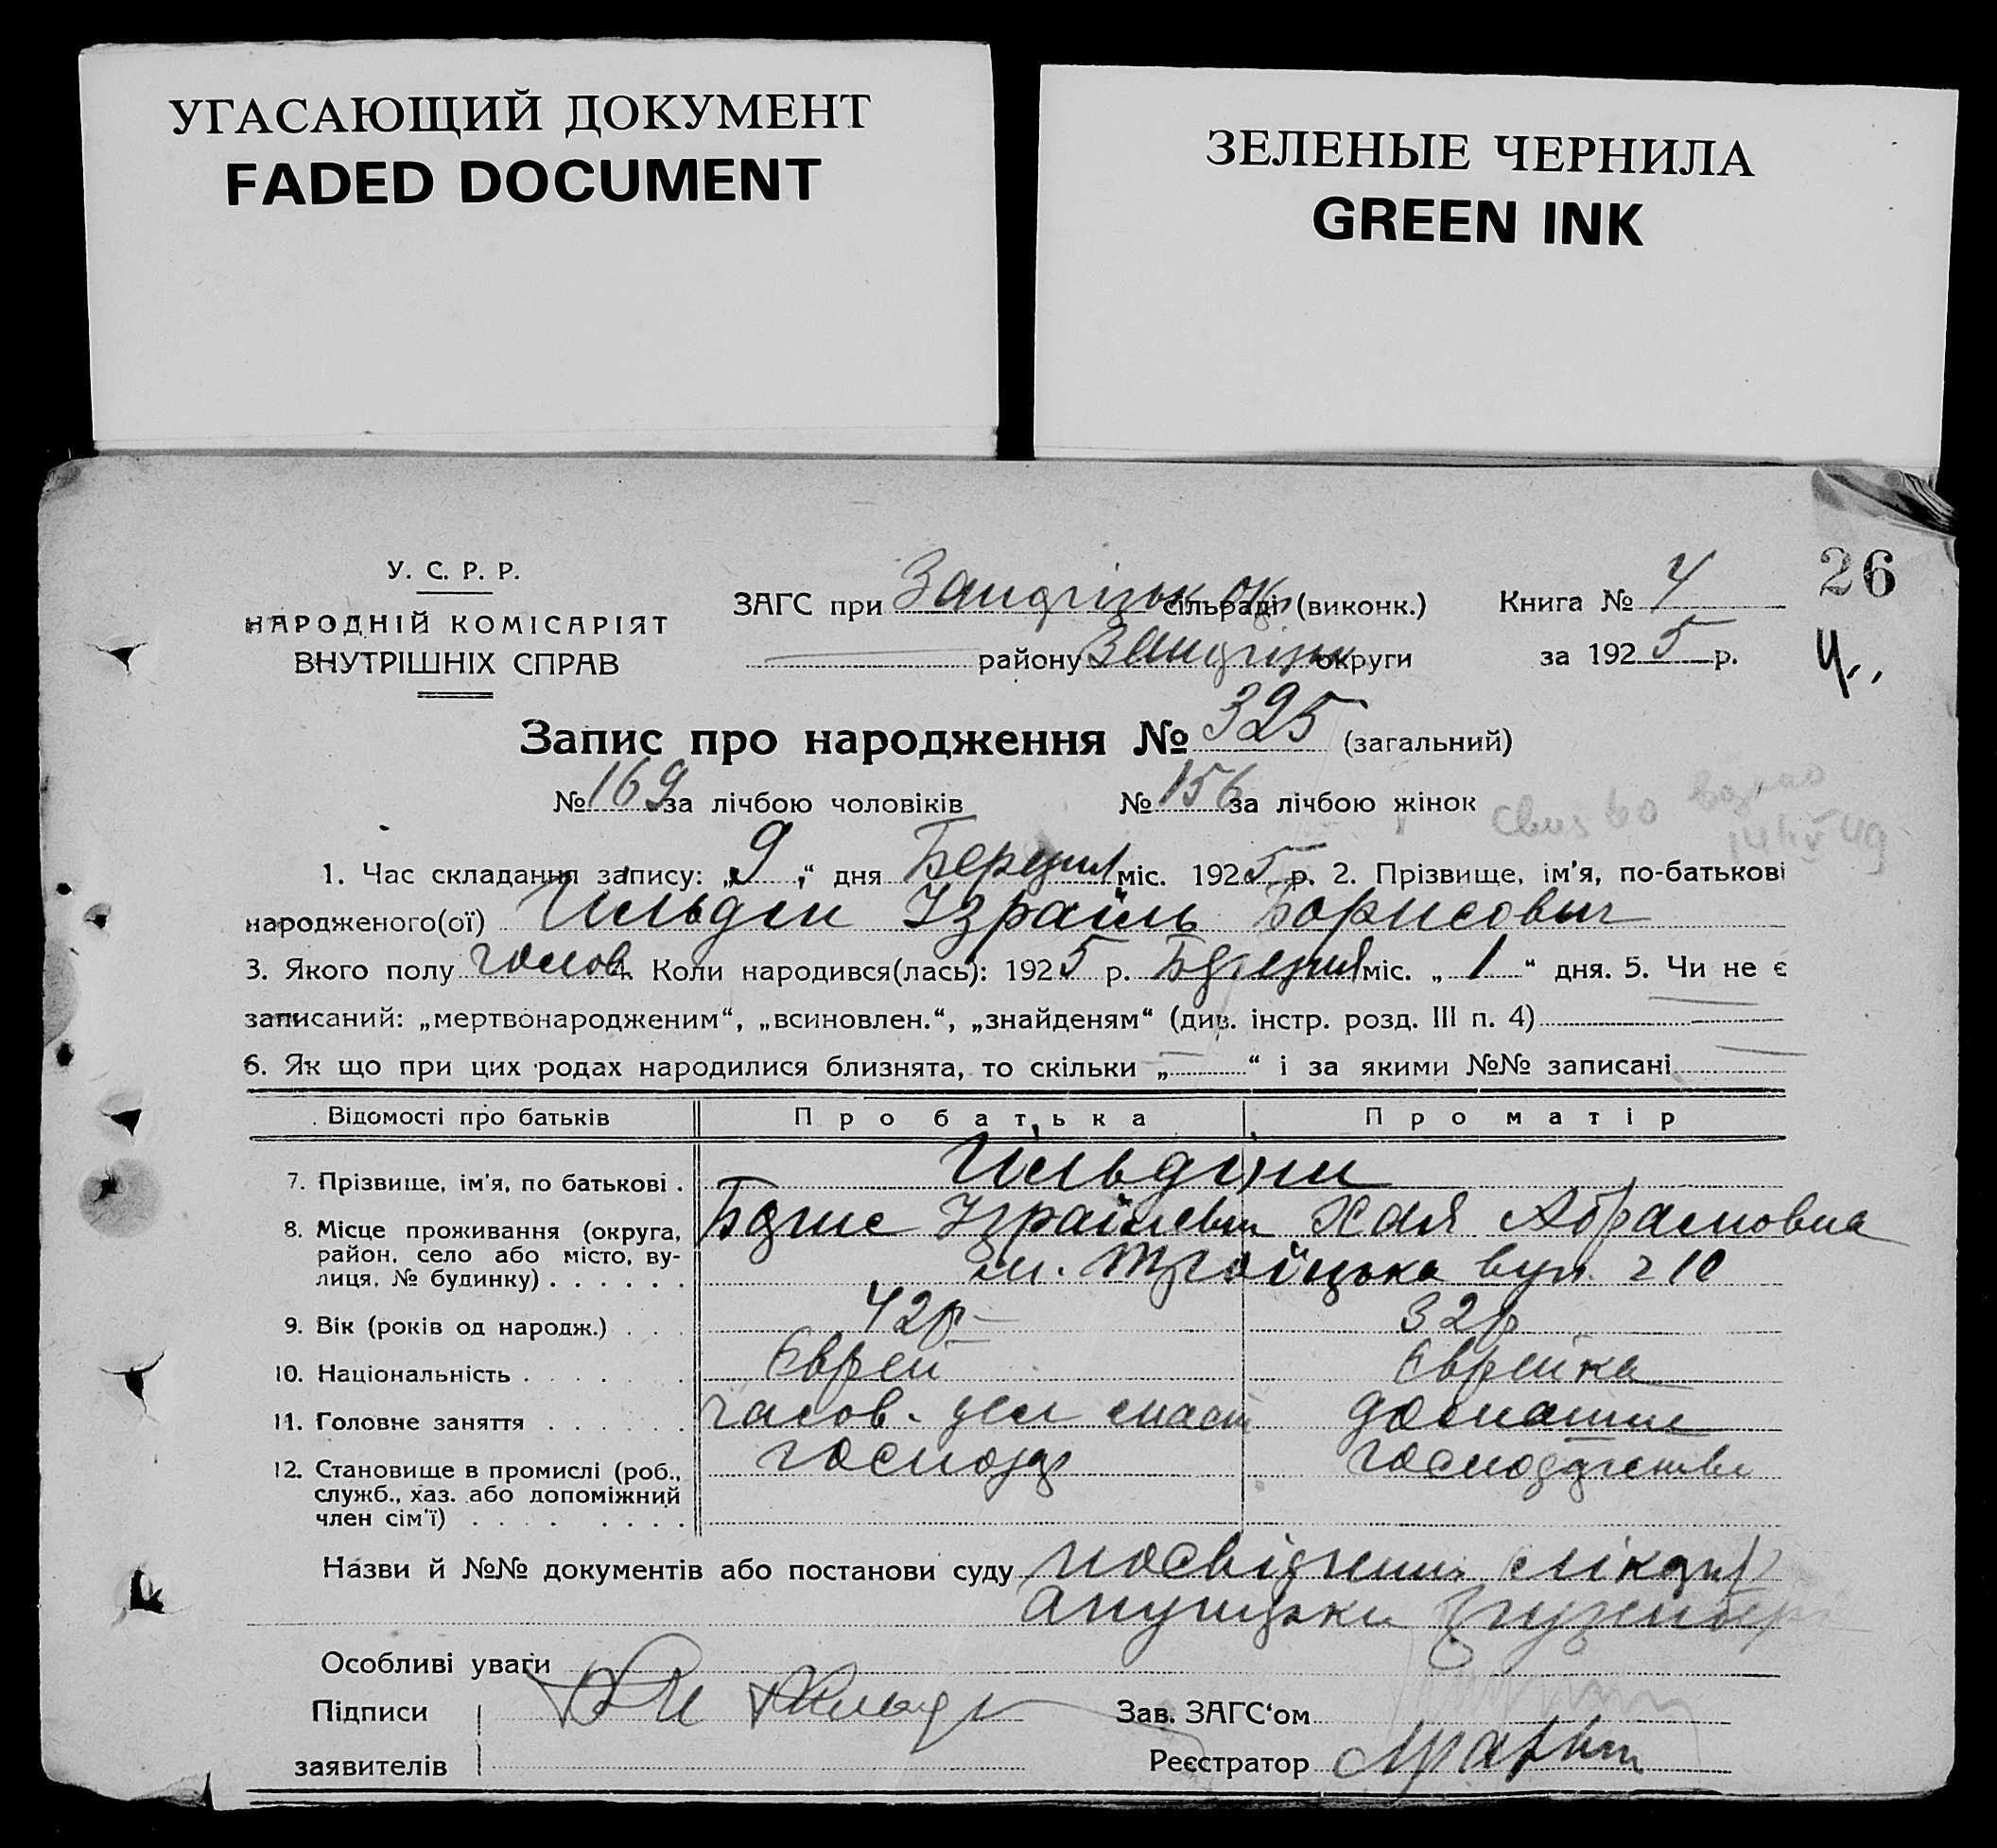 УГАСАЮЩИЙ ДОКУМЕНТ
FADED DOCUMENT
ЗЕЛЕНЫЕ ЧЕРНИЛА
GREEN INK
26
У. С. Р. Р.
НАРОДНІЙ КОМІСАРІЯТ
ВНУТРІШНІХ СПРАВ
ЗАГС при сільраді (виконк.)
району округи
Книга № 4
за 1925 р.
Запис про народження № 325 (загальний)
№ 169 за лічбою чоловіків № 156 за лічбою жінок
1. Час складання запису: „9“ дня Березня міс. 1925 р. 2. Прізвище, ім'я, по-батькові
народженого(ої) Ізраїль Борисович
3. Якого полу чолов. 4. Коли народився(лась): 1925 р. Березня міс. „1“ дня. 5. Чи не є
записаний: „мертвонародженим“, „всиновлен.“, „знайденям“ (див. інстр. розд. III п. 4)
6. Як що при цих родах народилися близнята, то скільки „ “ і за якими №№ записані
Відомості про батьків Про батька Про матір
7. Прізвище, ім'я, по батькові .
Борис Хая Абрамовна
8. Місце проживання (округа,
район, село або місто, ву-
лиця, № будинку) . . . . . .
м. Троїцька вул. 10
9. Вік (років од народж.) . . . 42 р 32 р
10. Національність . . . . . . Єврей Єврейка
11. Головне заняття . . . . . . часов. домашнє
12. Становище в промислі (роб.,
служб., хаз. або допоміжний
член сім'ї) . . . . . . . .
господар господарство
Назви й №№ документів або постанови суду посвідчення
акушерки
Особливі уваги
Підписи
заявителів
Зав. ЗАГС‘ом
Реєстратор